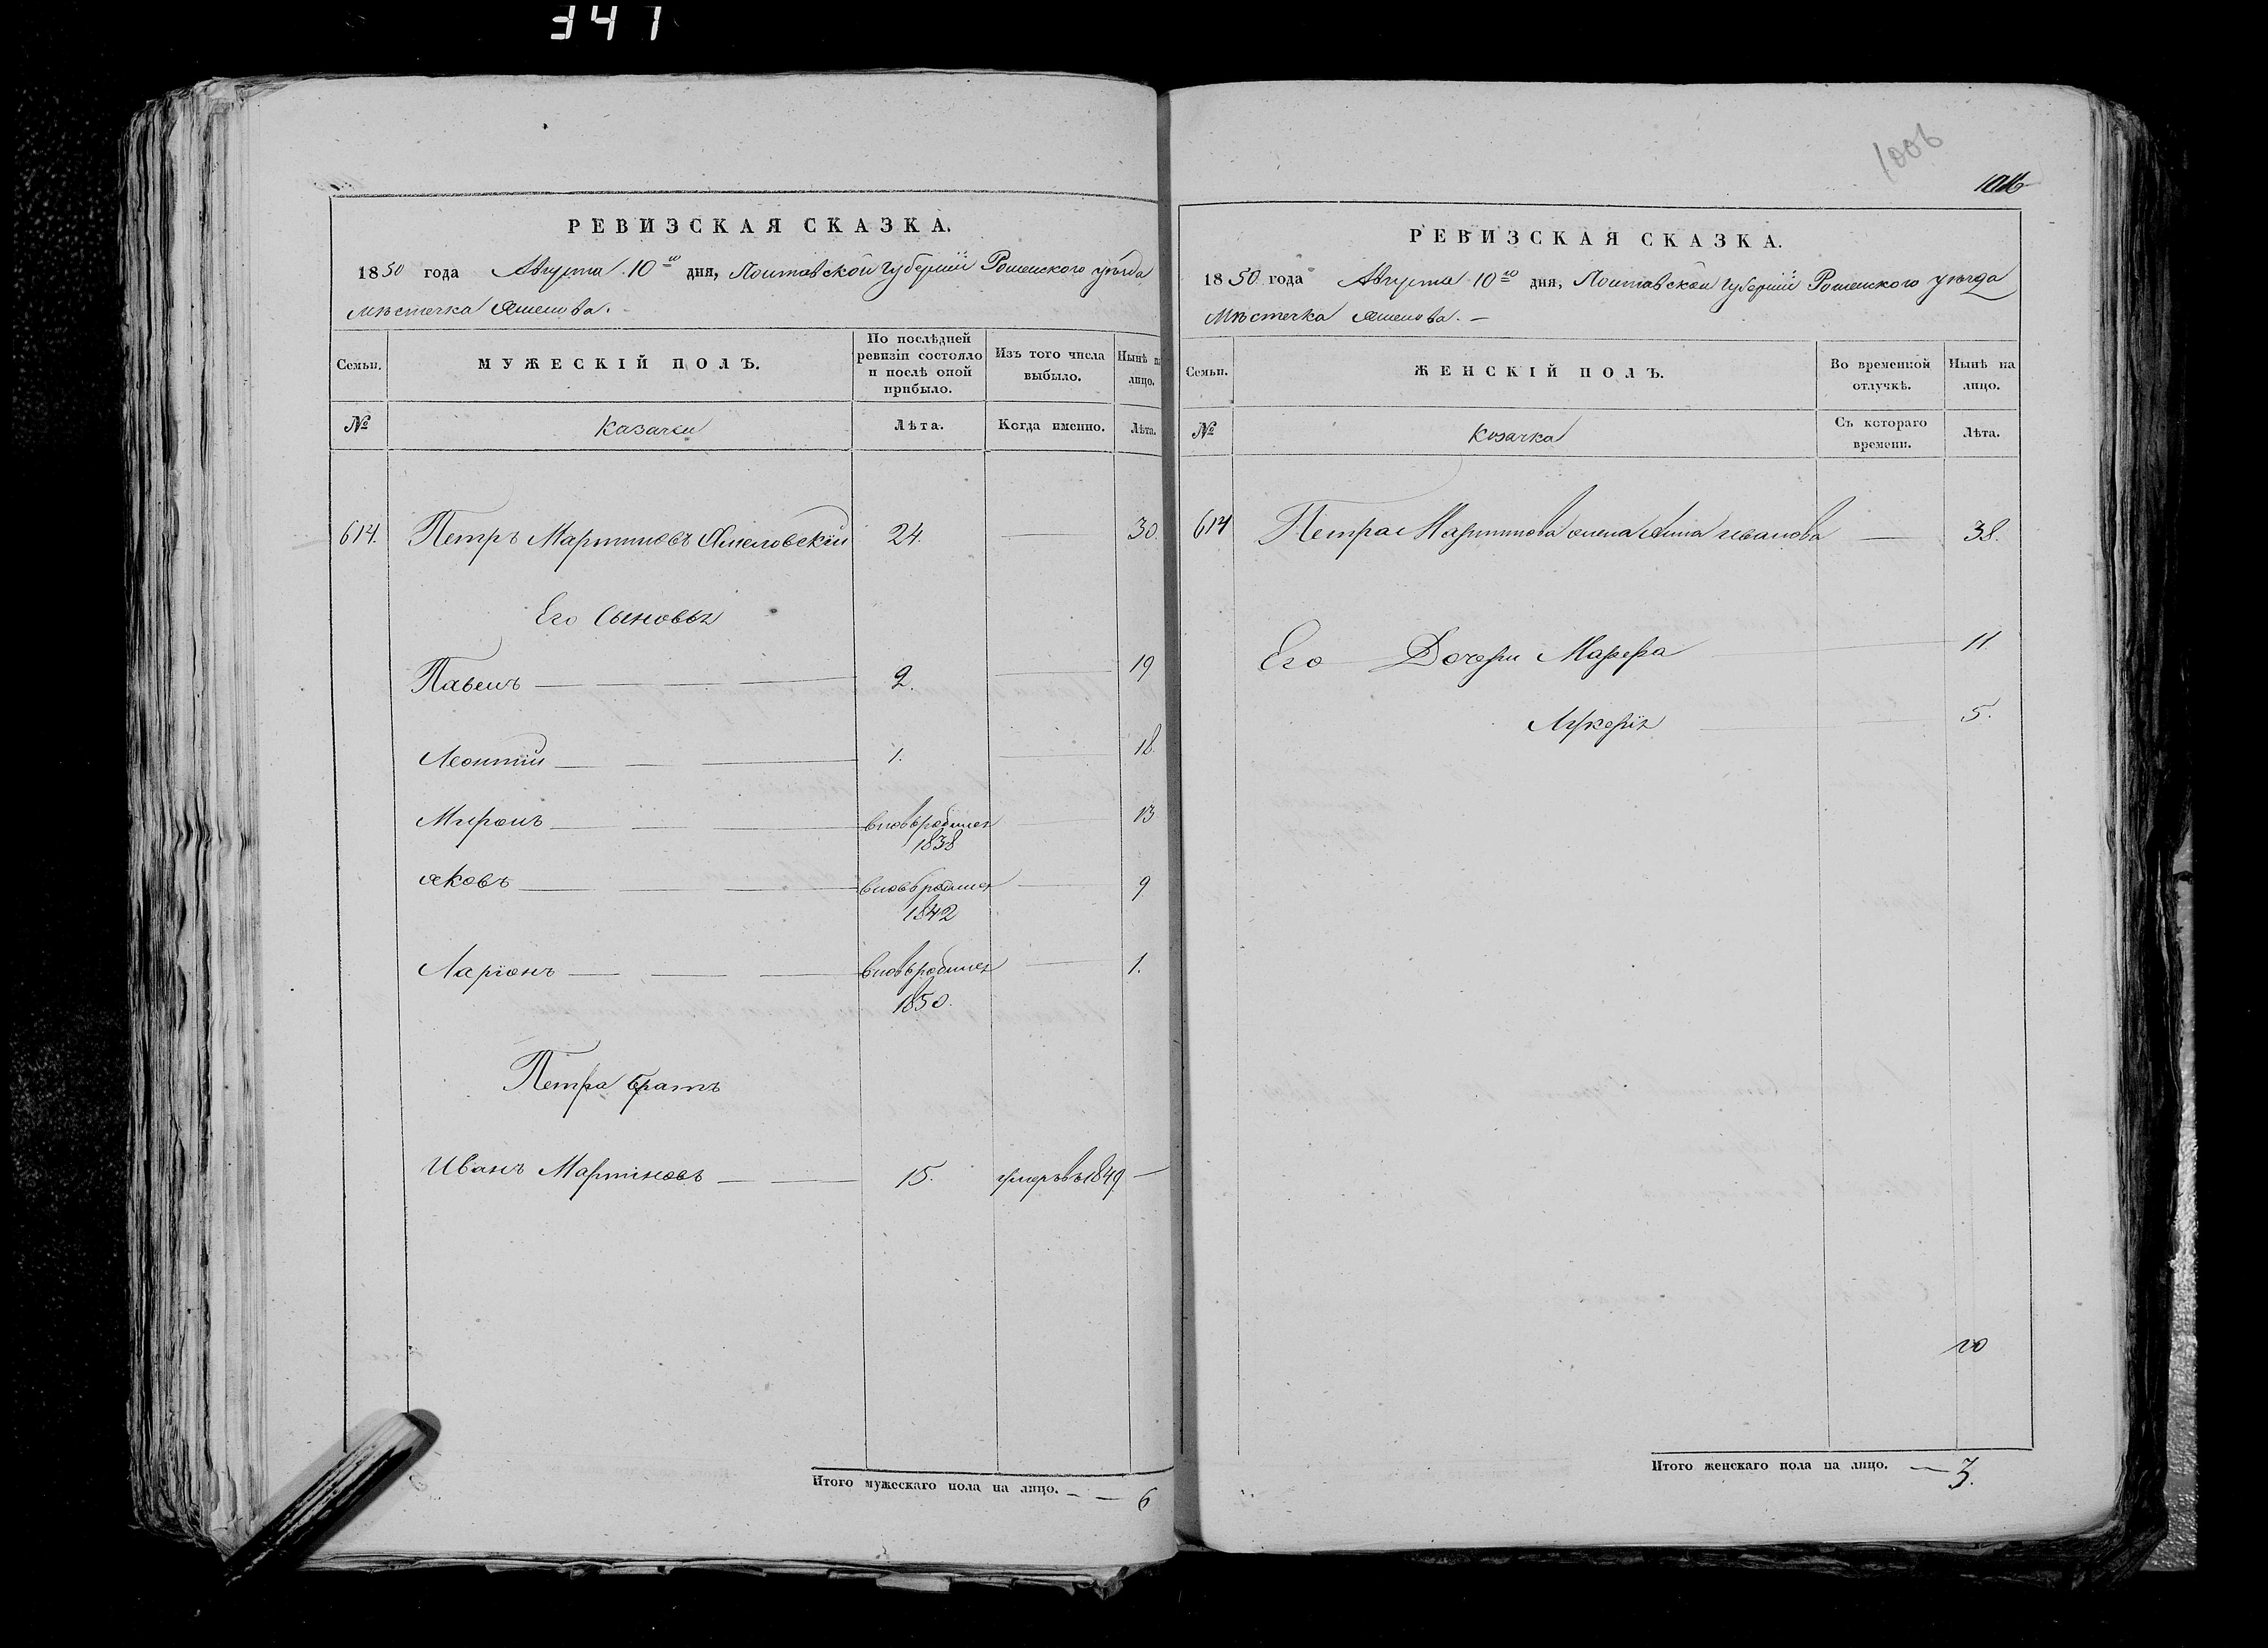 347
РЕВИЗСКАЯ СКАЗКА.
1850 года Августа 10го дня, Полтавской губерніи Роменского уѣзда
Мѣстечка
Семьи.
МУЖЕСКІЙ ПОЛЪ.
По послѣдней ревизіи состояло и послѣ оной прибыло.
Изъ того числа выбыло.
Нынѣ на лицо.
№
Казачки
Лѣта.
Когда именно.
Лѣта.
614. Петръ Мартиновъ 24. — 30.
Его Сыновья
Павелъ — 2. — 19
Леонтій — 1. — 18.
Миронъ — вновьродился 1838 — 13
Яковъ — вновьродился 1842 — 9
Ларіонъ — вновьродился 1850. — 1.
Петра братъ
Иванъ Мартіновъ — 15. умеръвъ1849. —
Итого мужескаго пола на лицо. — 6
1006
РЕВИЗСКАЯ СКАЗКА.
1850 года Августа 10го дня, Полтавской губерніи Роменского уѣзда
Мѣстечка
Семьи.
ЖЕНСКІЙ ПОЛЪ.
Во временной отлучкѣ.
Нынѣ на лицо.
№
Козачка
Съ котораго времени.
Лѣта.
614 Петра Мартинова жена Анна иванова — 38.
Его Дочери Марфа — 11
Лукерія — 5.
Итого женскаго пола на лицо. — 3.